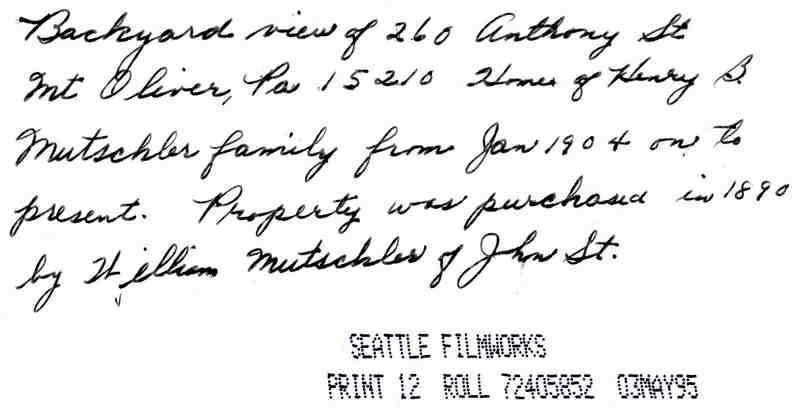 Backyard view of 260 Anthony St
Mt Oliver, Pa 15210 Home of Henry B.
Mutschler family from Jan 1904 on to
present. Property was purchased in 1890
by William Mutschler of John St.
SEATTLE FILMWORKS
PRINT 12 ROLL 72405852 03MAY95